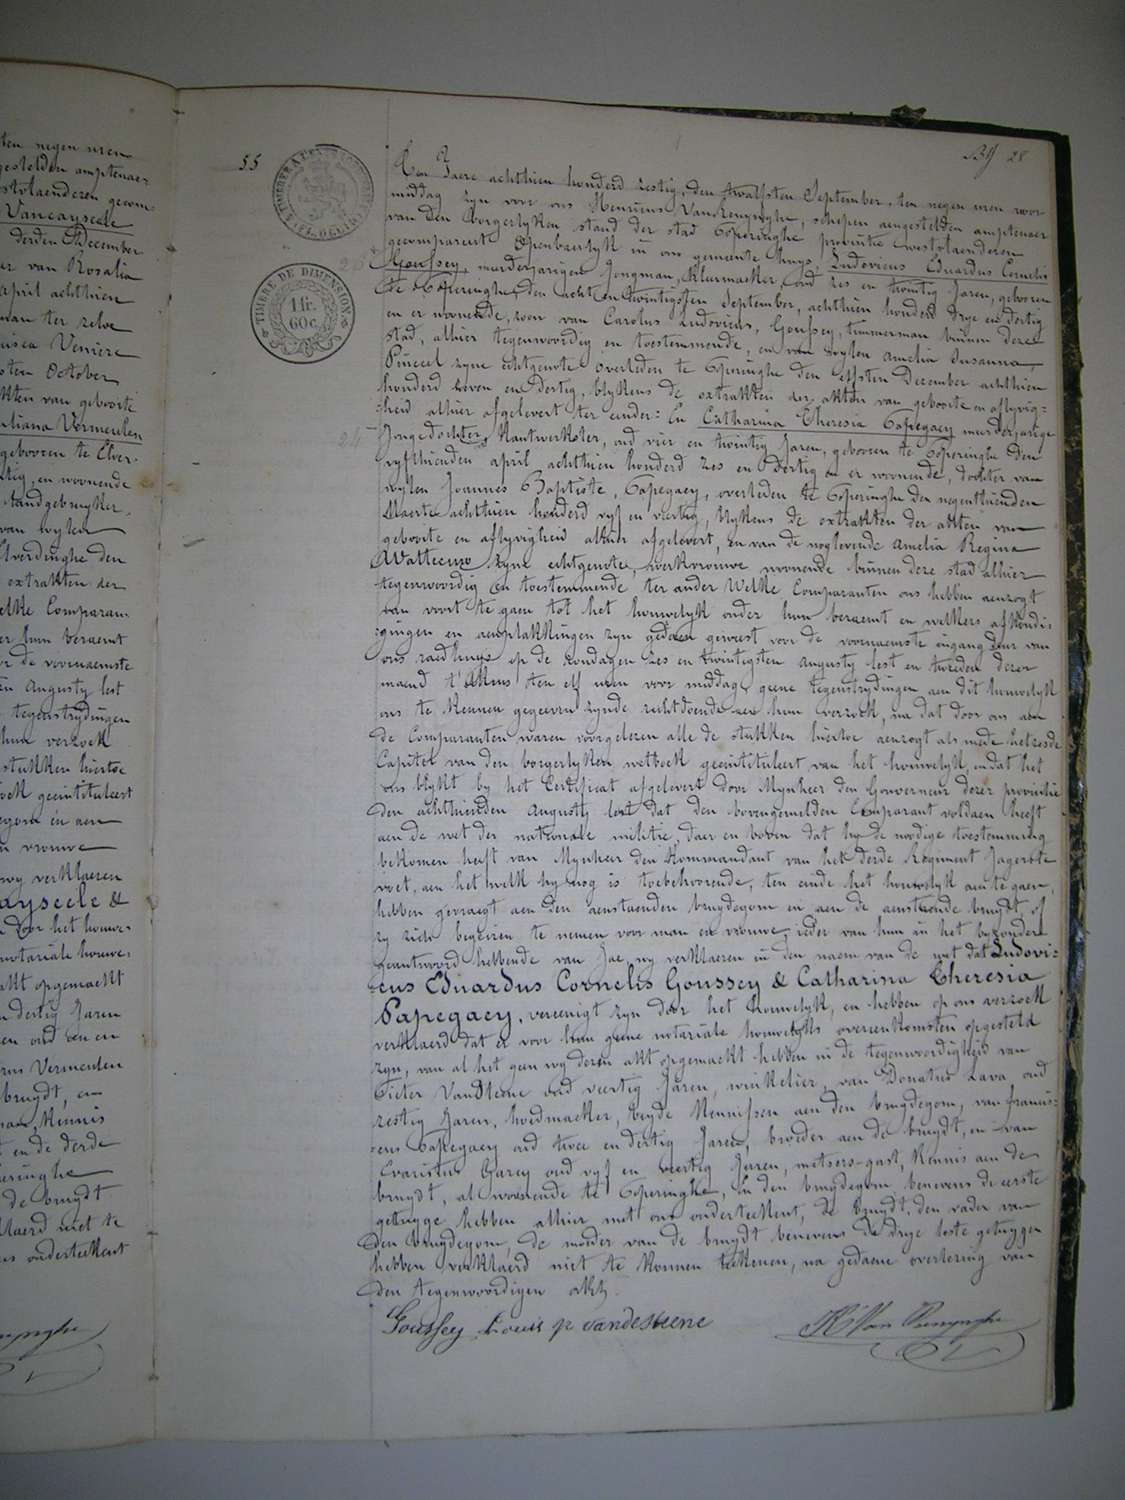 ten negen uren
gestelden amptenaer
Vancayseele
derden December
van Rosalia
april achthien
ter zelve
Veniere
sten October
akten van geboorte
uliana Vermeulen
gebooren te Elver-
en woonende
Landgebruyker
van wylen
Elverdinghe den
extrakten der
elke Comparan-
hun beraemt
de voornaemste
augusty lest
tegenstrydingen
hun verzoek
stukken hiertoe
geeintituleert
en aen
vrouwe
wy verklaeren
ayseele &
door het houwe-
notariale houwe-
akt opgemaekt
dertig Jaren
oud een en
Vermeulen
bruydt, en
Kennis
en de derde
eringhe
de bruydt
klaerd niet te
ons onderteekent
55
28
TIMBRE DE DIMENSION
1 fr.
60 c.
Een Jaere achthien honderd zestig, den twaelfsten September, ten negen uren voor
middag zyn voor ons Henricus VanRenynghe, schepen aengestelden amptenaer
van den borgerlyken stand der stad Poperinghe provintie westvlaenderen
gecompareert openbaerlyk in ons gemeente huys, Ludovicus Eduardus Cornelis
Goussey, meerderjarigen Jongman, kleermaker, oud zes en twintig Jaren, gebooren
te Poperinghe, den acht en twintigsten September, achthien honderd drye en dertig
en er woonende, zoon van Carolus Ludovicus, Goussey, timmerman binnen deze
stad, alhier tegenwoordig en toestemmende, en van wylen amelia Susanna
Pinceel zyne echtgenote overleden te Poperinghe den elfsten December achthien
honderd zeven en dertig, blykens de extrakten der akten van geboorte en aflyvig=
=heid alhier afgelevert ter eender: En Catharina Theresia Papegaey meerderjarige
Jongedochter, Kantwerkster, oud vier en twintig Jaren, gebooren te Poperinghe den
vyfthienden april achthien honderd zes en dertig en er woonende, dochter van
wylen Joannes Baptiste, Papegaey, overleden te Poperinghe den negenthienden
Maerte achthien honderd vyf en veertig, blykens de extrakten der akten van
geboorte en aflyvigheid alhier afgelevert, en van de noglevende amelia Regina
Watteeuw zyne echtgenote, werkvrouwe woonende binnen deze stad alhier
tegenwoordig en toestemmende ter ander Welke Comparanten ons hebben aenzogt
van voort te gaen tot het houwelyk onder hun beraemt en welkers afkondi=
=gingen en aenplakkingen zyn gedaen geweest voor de voornaemste ingang deur van
ons raedhuys op de zondagen zes en twintigsten augusty lest en tweeden dezer
maend t'elkens ten elf uren voor middag, geene tegenstrydingen aen dit huwelyk
ons te kennen gegeeven zynde rechtdoende aen hun verzoek, na dat door ons aen
de Comparanten waren voorgelezen alle de stukken hiertoe aenzogt als mede het zesde
Capitel van den borgerlyken wetboek geeintituleert van het houwelyk, en dat het
ons blykt by het Certificat afgelevert door Mynheer den Gouverneur dezer provintie
den achthienden augusty lest dat den bovengemelden Comparant voldaen heeft
aen de wet der nationale militie, daer en boven dat hy de noodige toestemming
bekomen heeft van Mynheer den Kommandant van het derde Regiment Jagers te
voet, aen het welk hy nog is toebehoorende, ten einde het houwelyk aen te gaen,
hebben gevraegt aen den aenstaenden bruydegom en aen de aenstaende bruydt, of
zy zich begeiren te nemen voor man en vrouwe, ieder van hun in het byzonder
geantwoord hebbende van Jae, wy verklaeren in den naem van de wet dat Ludovi=
=cus Eduardus Cornelis Goussey & Catharina Theresia
Papegaey, vereenigt zyn door het houwelyk, en hebben op ons verzoek
verklaerd dat er voor hun geene notariale houwelyks overeenkomsten opgesteld
zyn, van al het geen wy dezen akt opgemaekt hebben in de tegenwoordigheid van
Pieter VandSteene oud veertig Jaren, winkelier, van Donatus Lava oud
zestig Jaren, hoedmaeker, beyde Kennissen aen den bruydegom, van francis=
=cus Papegaey oud twee en dertig Jaren, broeder aen de bruydt, en van
Evaristus Garey oud vyf en veertig Jaren, metsers-gast, Kennis aen de
bruydt, al woonende te Poperinghe, En den bruydegom benevens de eerste
getuyge hebben alhier met ons onderteekent, de bruydt, den vader van
den bruydegom, de moeder van de bruydt benevens de drye leste getuygen
hebben verklaerd niet te konnen teekenen, na gedaene voorlezing van
den tegenwoordigen akt.
Goussey Louis p vandesteene